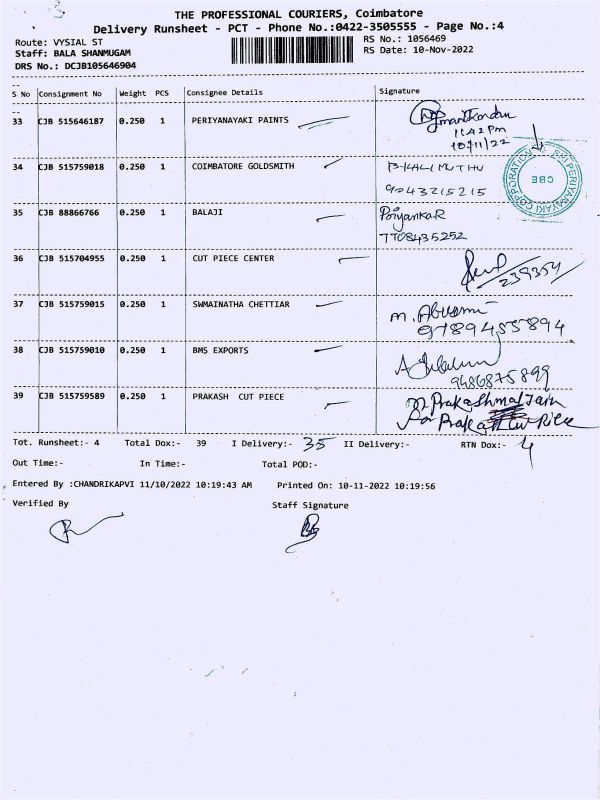 THE PROFESSIONAL COURIERS, Coimbatore
Delivery Runsheet - PCT - Phone No.:0422-3505555 - Page No.:4
Route: VYSIAL ST
RS No.: 1056469
Staff: BALA SHANMUGAM
RS Date: 10-Nov-2022
DRS No.: DCJB105646904
S No Consignment No Weight PCS Consignee Details Signature
33 CJB 515646187 0.250 1 PERIYANAYAKI PAINTS
11.42 Pm
10/11/22
34 CJB 515759018 0.250 1 COIMBATORE GOLDSMITH B.KALIMUTHU
9043215215
CORPORATION PERIYANAYAKI CBE
35 CJB 88866766 0.250 1 BALAJI PriyankaR
7708435252
36 CJB 515704955 0.250 1 CUT PIECE CENTER
239354
37 CJB 515759015 0.250 1 SWMAINATHA CHETTIAR
38 CJB 515759010 0.250 1 BMS EXPORTS
9486875899
39 CJB 515759589 0.250 1 PRAKASH CUT PIECE Prakashmal Jain
For Prakash
Tot. Runsheet:- 4 Total Dox:- 39 I Delivery:- 35 II Delivery:- RTN Dox:- 4
Out Time:- In Time:- Total POD:-
Entered By :CHANDRIKAPVI 11/10/2022 10:19:43 AM Printed On: 10-11-2022 10:19:56
Verified By Staff Signature